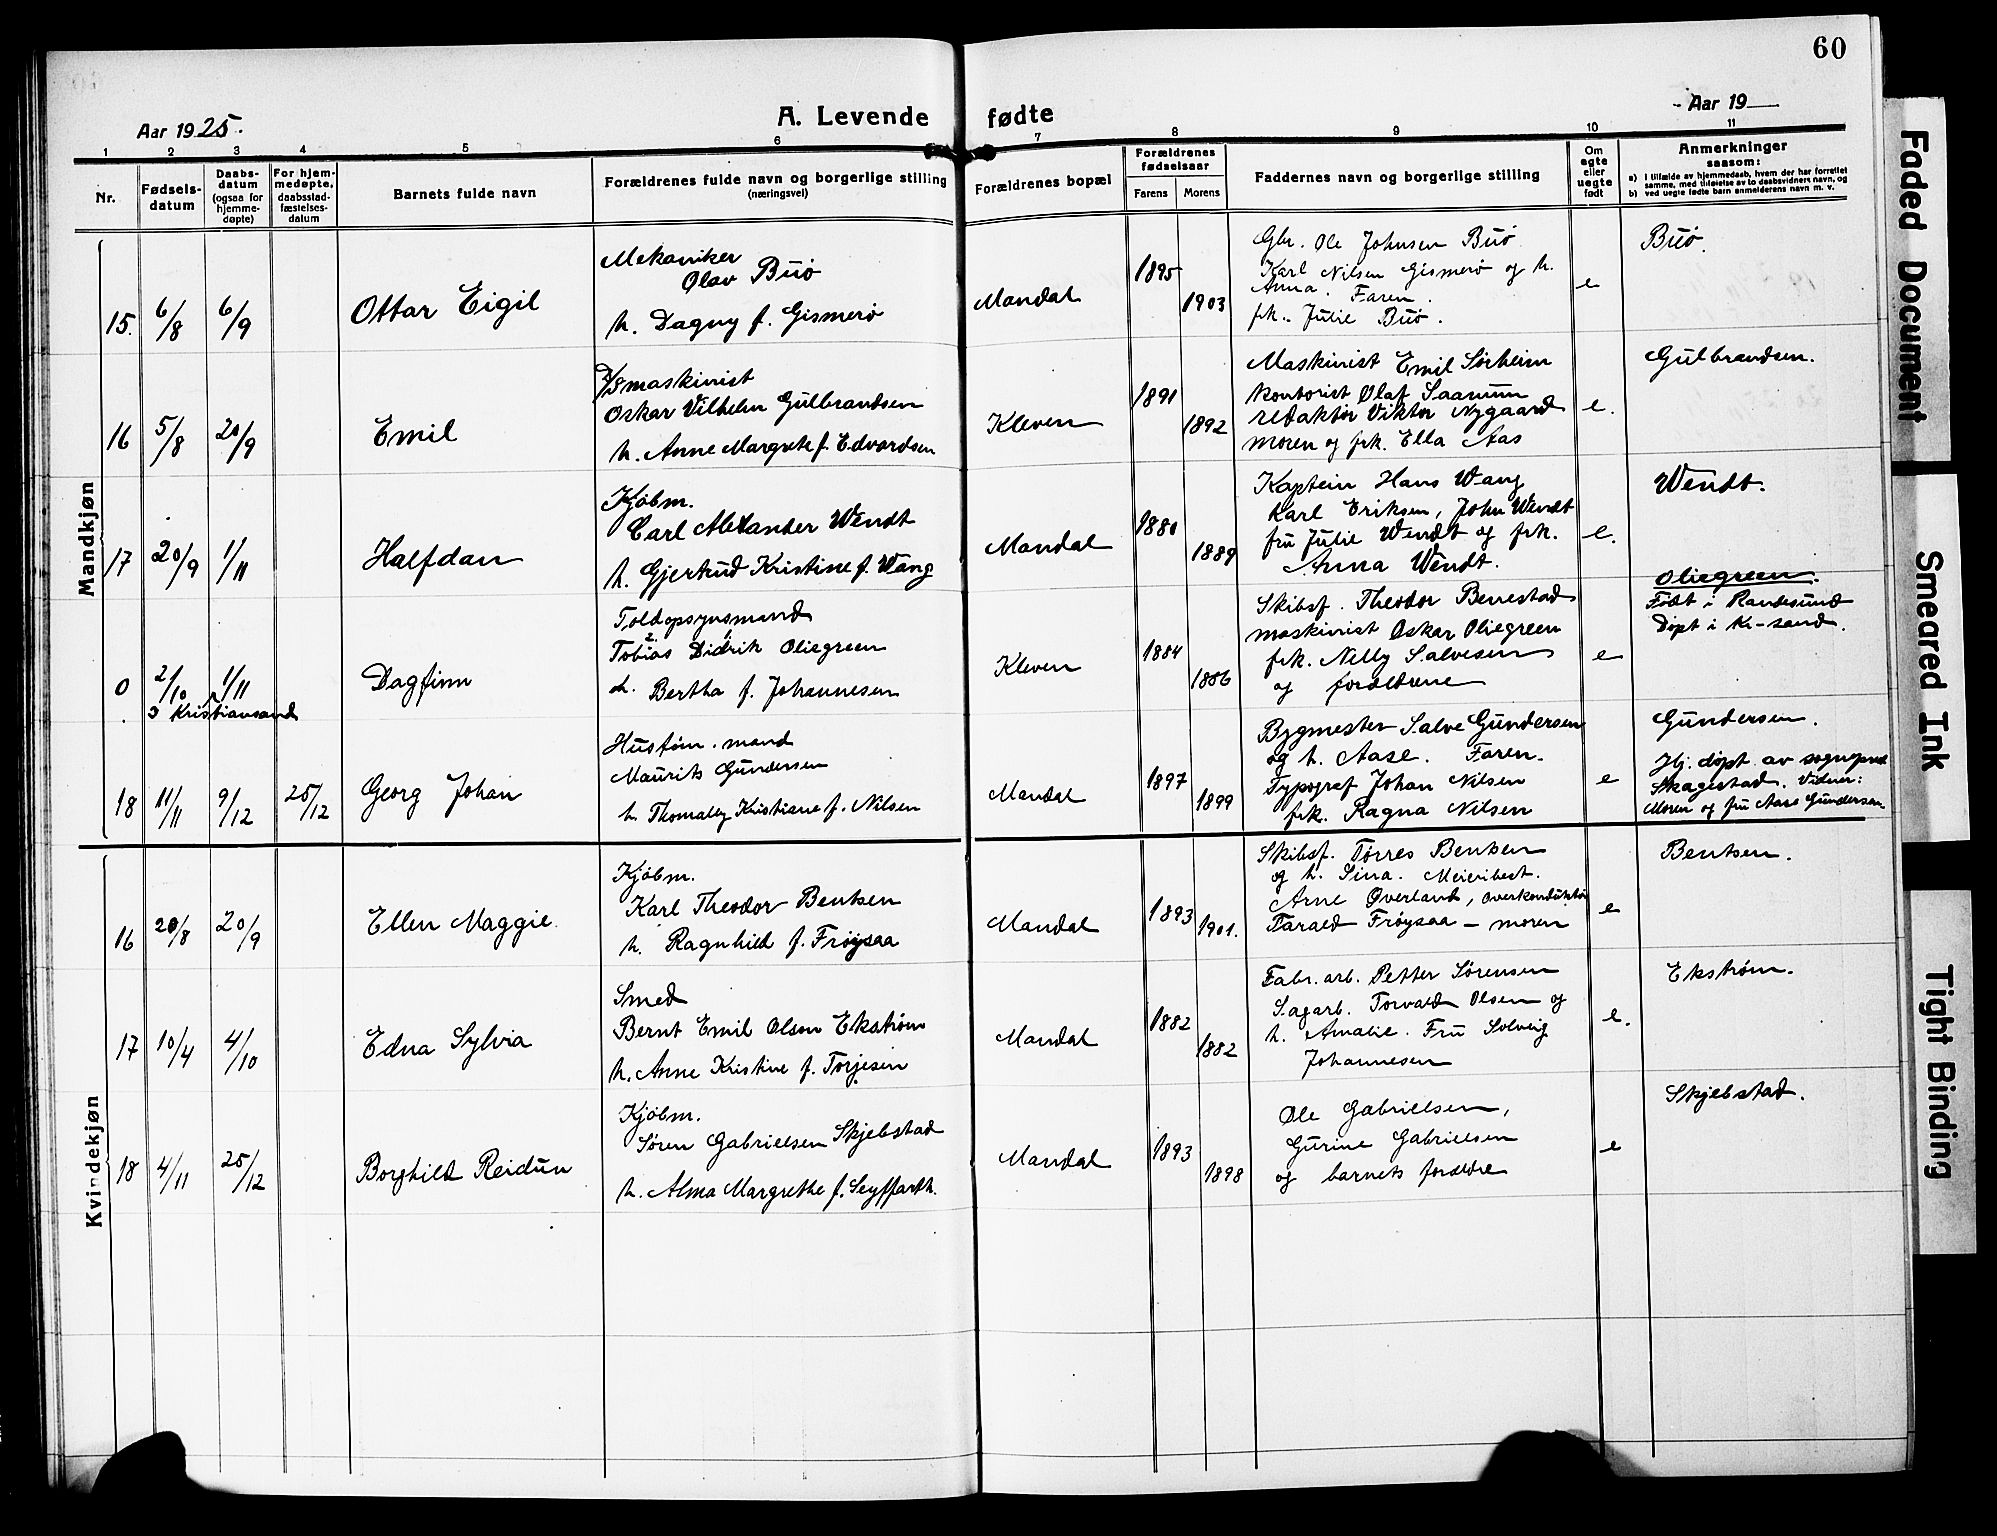 60
Aar 1925.
A. Levende fødte
Aar 19
1 2 3 4 5 6 7 8 9 10 11
Nr.
Fødsels-
datum
Daabs-
datum
(ogsaa for
hjemme-
døpte)
For hjem-
medøpte,
daabsstad-
fæstelses-
datum
Barnets fulde navn
Forældrenes fulde navn og borgerlige stilling
(næringsvei)
Forældrenes bopæl
Forældrenes
fødselsaar
Farens
Morens
Faddernes navn og borgerlige stilling
Om
egte
eller
uegte
født
Anmerkninger
saasom:
a) i tilfælde av hjemmedaab, hvem der har forrettet
samme, med tilføielse av to daabsvidners navn, og
b) ved uegte fødte barn anmelderens navn m. v.
Mandkjøn
15.
6/8
6/9
Ottar Eigil
Mekaniker
Olav Buø
h. Dagny f. Gismerø
Mandal
1895
1903
Gbr. Ole Johnsen Buø
Karl Nilsen Gismerø og h.
Anna. Faren.
frk. Julie Buø.
e
Buø.
16
5/8
20/9
Emil
D/S maskinist
Oskar Vilhelm Gulbrandsen
h. Anne Margrete f. Edvardsen
Kleven
1891
1892
Maskinist Emil Sørheim
Kontorist Olaf Saanum
redaktør Viktor Nygaard
moren og frk. Ella Aas
e.
Gulbrandsen.
17
20/9
1/11
Halfdan
Kjøbm.
Carl Alexander Wendt
h. Gjertrud Kristine f. Wang
Mandal
1880
1889
Kaptein Hans Wang
Karl Eriksen, John Wendt
fru Julie Wendt og frk.
Anna Wendt.
e.
Wendt.
0
2/10
1/11
i Kristiansand
Dagfinn
Toldopsynsmand
2. 1
Tobias Didrik Oliegreen
h. Bertha f. Johannesen
Kleven
1884
1886
Skibsf. Theodor Benestad
maskinist Oskar Oliegreen
frk. Nelly Salvesen
og forældrene
e
Oliegreen.
Født i Randesund
Døpt i Kr-sand.
18
11/11
9/12
25/12
Georg Johan
Hustøm. mand
Maurits Gundersen
h. Thomaley Kristiane f. Nilsen
Mandal
1897
1899
Bygmester Salve Gundersen
og h. Aase. Faren.
Typograf Johan Nilsen
frk. Ragna Nilsen
e
Gundersen.
Hj. døpt av sogneprest
Skagestad. Vidner:
Moren og fru Aase Gundersen.
Kvindekjøn
16
20/8
20/9
Ellen Maggie.
Kjøbm.
Karl Theodor Bentsen
h. Ragnhild f. Frøysaa
Mandal
1893
1901.
Skibsf. Tørres Bentsen
og h. Sina. Meieribest.
Arne Øverland, overkonduktør
Tarald Frøysaa – moren
e
Bentsen.
17
10/4
4/10
Edna Sylvia
Smed
Bernt Emil Olsen Ekstrøm
h. Anne Kristine f. Torjesen
Mandal
1882
1882
Fabr. arb. Petter Sørensen
Sagarb. Torvald Olsen og
h. Amalie. Fru Solveig
Johannesen
e.
Ekstrøm.
18
4/11
25/12
Borghild Reidun
Kjøbm.
Søren Gabrielsen Skjebstad
h. Alma Margrethe f. Seyffarth.
Mandal
1893
1898
Ole Gabrielsen,
Gurine Gabrielsen
og barnets forældre
e
Skjebstad.
Faded Document
Smeared Ink
Tight Binding